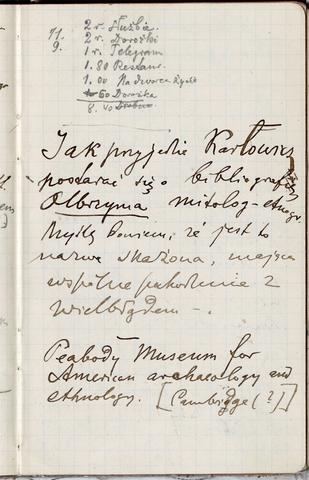 11. 2 r. Służbie.
9. 2 r. Dorożki
1 r. Telegram
1.80 Restaur.
1.00 Na dworcu
60 Dorożka
8.40
Jak przyjedzie Karłowicz
postarać się o bibliografię
Olbrzyma mitolog-etnogr.
Myślę bowiem, że jest to
nazwa skażona, mająca
wspólne pochodzenie z
wielbłądem –.
Peabody Museum for
American archaeology and
ethnology. [Cambridge (?)]